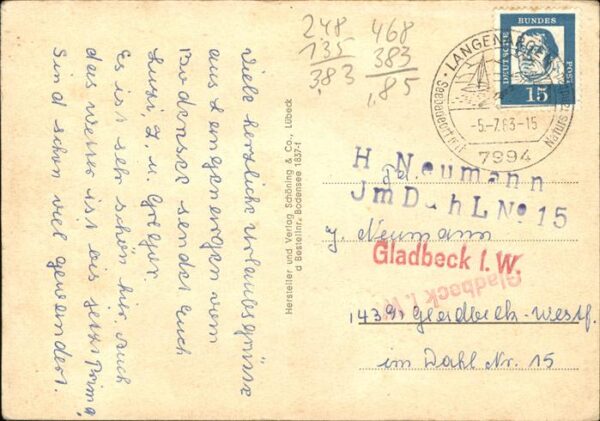 viele herzliche Urlaubsgrüsse
aus Langenargen vom
Bodensee sendet Euch
Luzi, u.
Es ist sehr schön hir, auch
das wetter ist bis jetzt Prima,
Sind schon viel gewandert.
Hersteller und Verlag Schöning & Co., Lübeck
Bestellnr. Bodensee 1837-f
248
135
3,83
468
383
1,85
LANGENARGEN
-5.-7.63-15
7994
DEUTSCHE BUNDESPOST
15
H. Neumann
Jm Dahl No 15
Fam.
J. Neumann
Gladbeck I. W.
Gladbeck I. W.
4139 Gladbeck-Westf.
im Dahl Nr. 15